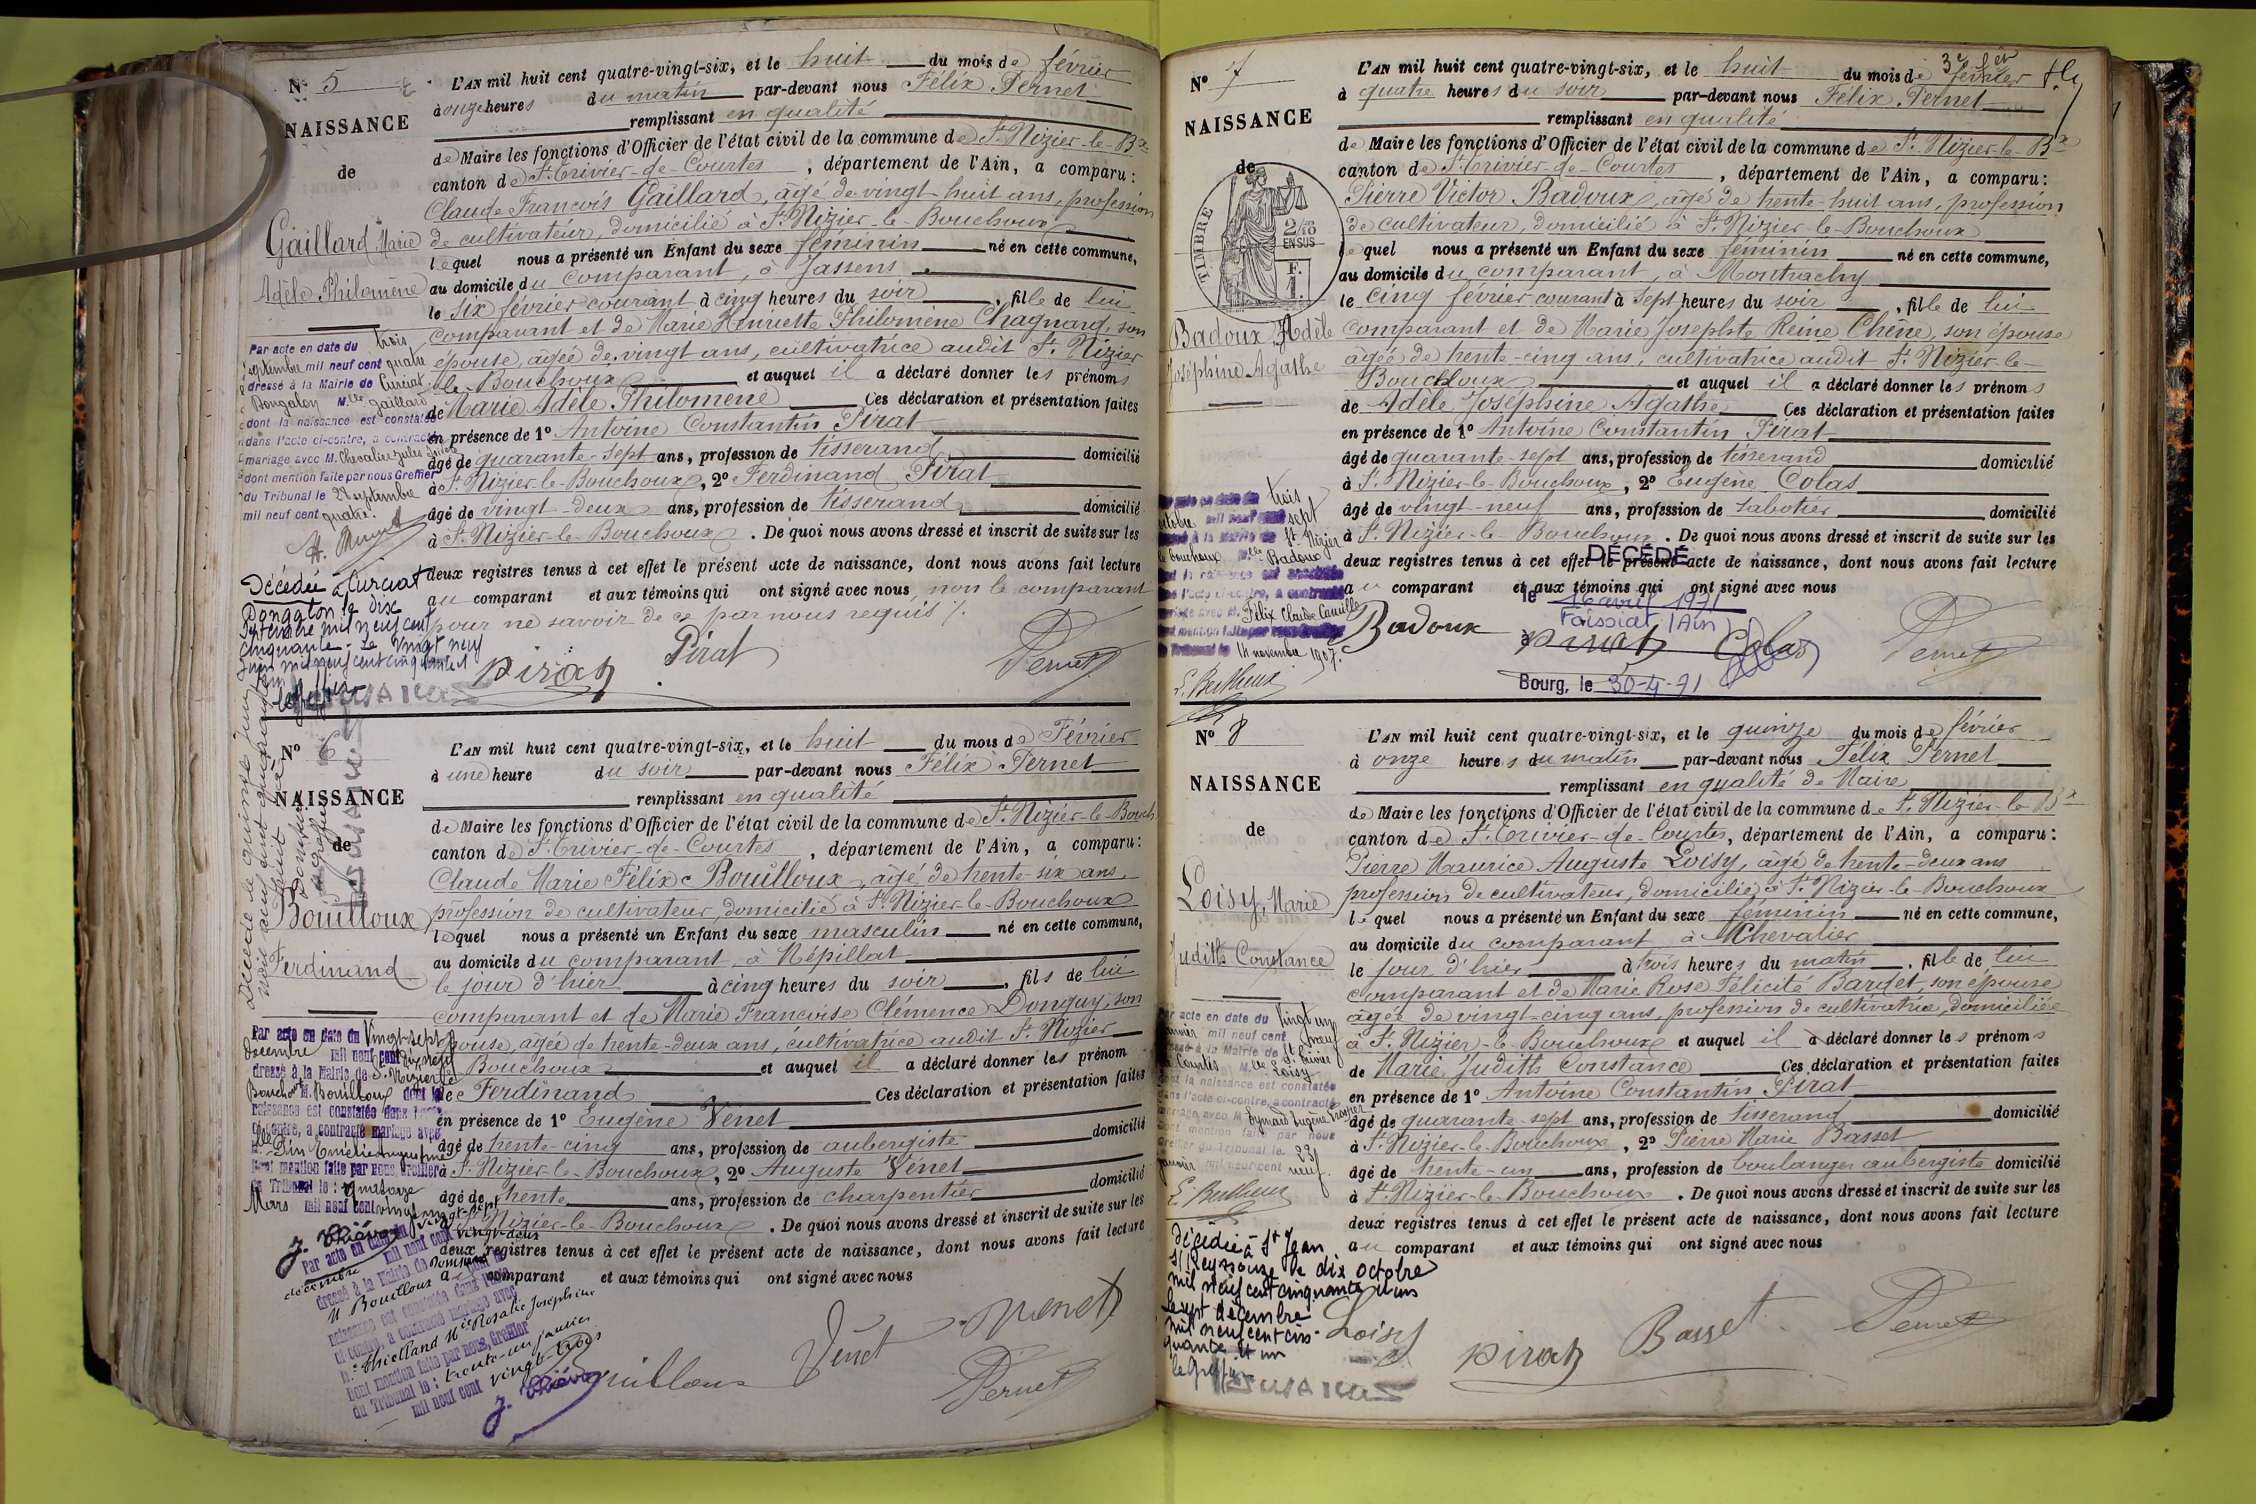 N° 5
NAISSANCE
de
Gaillard Marie
Adèle Philomène
L'AN mil huit cent quatre-vingt-six, et le huit du mois de février
à onze heures du matin par-devant nous Félix Pernet
remplissant en qualité
de Maire les fonctions d'Officier de l'état civil de la commune de St Nizier-le-Bx
canton de St Trivier-de-Courtes, département de l'Ain, a comparu:
Claude François Gaillard, âgé de vingt-huit ans, profession
de cultivateur, domicilié à St Nizier-le-Bouchoux
lequel nous a présenté un Enfant du sexe féminin né en cette commune,
au domicile du comparant, à Jassens
le six février courant à cinq heures du soir, fille de lui
comparant et de Marie Henriette Philomène Chagnard, son
épouse, âgée de vingt ans, cultivatrice audit St Nizier
le-Bouchoux et auquel il a déclaré donner les prénoms
de Marie Adèle Philomène Ces déclaration et présentation faites
en présence de 1° Antoine Constantin Pirat
âgé de quarante-sept ans, profession de tisserand domicilié
à St Nizier-le-Bouchoux, 2° Ferdinand Pirat
âgé de vingt-deux ans, profession de tisserand domicilié
à St Nizier-le-Bouchoux. De quoi nous avons dressé et inscrit de suite sur les
deux registres tenus à cet effet le présent acte de naissance, dont nous avons fait lecture
au comparant et aux témoins qui ont signé avec nous, non le comparant
pour ne savoir de ce par nous requis
Pirat Pirat Pernet
Par acte en date du trois
septembre mil neuf cent quatre
dressé à la Mairie de Curciat
Dongalon Mlle Gaillard
dont la naissance est constatée
dans l'acte ci-contre, a contracté
mariage avec M. Chevalier Jules
dont mention faite par nous Greffier
du Tribunal le 28 septembre
mil neuf cent quatre.
Décédée à Curciat
Dongalon le dix
mil neuf cent
cinquante - Le vingt neuf
juin mil neuf cent cinquante
Le greffier
N° 6
NAISSANCE
de
Bouilloux
Ferdinand
L'AN mil huit cent quatre-vingt-six, et le huit du mois de Février
à une heure du soir par-devant nous Félix Pernet
remplissant en qualité
de Maire les fonctions d'Officier de l'état civil de la commune de St Nizier-le-Bouch
canton de St Trivier-de-Courtes, département de l'Ain, a comparu:
Claude Marie Félix Bouilloux, âgé de trente-six ans,
profession de cultivateur, domicilié à St Nizier-le-Bouchoux
lequel nous a présenté un Enfant du sexe masculin né en cette commune,
au domicile du comparant à Népillat
le jour d'hier à cinq heures du soir, fils de lui
comparant et de Marie Françoise Clémence Donguy, son
épouse, âgée de trente-deux ans, cultivatrice audit St Nizier
Bouchoux et auquel il a déclaré donner les prénom
de Ferdinand Ces déclaration et présentation faites
en présence de 1° Eugène Venet
âgé de trente cinq ans, profession de aubergiste domicilié
à St Nizier-le-Bouchoux, 2° Auguste Vénet
âgé de trente ans, profession de charpentier domicilié
St Nizier-le-Bouchoux. De quoi nous avons dressé et inscrit de suite sur les
deux registres tenus à cet effet le présent acte de naissance, dont nous avons fait lecture
au comparant et aux témoins qui ont signé avec nous
Bouilloux Venet Venet Pernet
Par acte en date du Vingt-sept
décembre mil neuf cent dix neuf
dressé à la Mairie de St Nizier le
Bouchoux M. Bouilloux dont la
naissance est constatée dans l'acte
ci-contre, a contracté mariage avec
Mlle Pin Emélie Augustine
Dont mention faite par nous Greffier
du Tribunal le: quatorze
Mars mil neuf cent vingt
Par acte en date du vingt-sept
décembre mil neuf cent vingt-deux
dressé à la Mairie de
M Bouilloux dont la
naissance est constatée dans l'acte
ci-contre, a contracté mariage avec
Thielland Mie Rosalie Joséphine
Dont mention faite par nous, Greffier
du Tribunal le: trente-un janvier
mil neuf cent vingt-trois
N° 7
NAISSANCE
de
TIMBRE
2/10
EN SUS
F.
1.
Badoux Adèle
Joséphine Agathe
L'AN mil huit cent quatre-vingt-six, et le huit du mois de février
à quatre heures du soir par-devant nous Félix Pernet
remplissant en qualité
de Maire les fonctions d'Officier de l'état civil de la commune de St Nizier-le-Bx
canton de St Trivier-de-Courtes, département de l'Ain, a comparu:
Pierre Victor Badoux, âgé de trente-huit ans, profession
de cultivateur, domicilié à St Nizier-le-Bouchoux
lequel nous a présenté un Enfant du sexe féminin né en cette commune,
au domicile du comparant, à Montrachy
le cinq février courant à sept heures du soir, fille de lui
comparant et de Marie Josephte Reine Chêne, son épouse
âgée de trente-cinq ans, cultivatrice audit St Nizier-le-
Bouchoux et auquel il a déclaré donner les prénoms
de Adèle Joséphine Agathe Ces déclaration et présentation faites
en présence de 1° Antoine Constantin Pirat
âgé de quarante-sept ans, profession de tisserand domicilié
à St Nizier-le-Bouchoux, 2° Eugène Colas
âgé de vingt-neuf ans, profession de sabotier domicilié
à St Nizier-le-Bouchoux. De quoi nous avons dressé et inscrit de suite sur les
deux registres tenus à cet effet le présent acte de naissance, dont nous avons fait lecture
au comparant et aux témoins qui ont signé avec nous
DÉCÉDÉ
le 16 avril 1971
à Faissiat (Ain)
Bourg, le 30-4-71
Badoux Pirat Colas Pernet
Par acte en date du trois
octobre mil neuf cent sept
dressé à la Mairie de St Nizier
le Bouchoux Mlle Badoux
dont la naissance est constatée
dans l'acte ci-contre, a contracté
mariage avec M. Félix Claude Camille
dont mention faite par nous Greffier
du Tribunal le 14 novembre 1907.
N° 8
NAISSANCE
de
Loisy, Marie
Judith Constance
L'AN mil huit cent quatre-vingt-six, et le quinze du mois de février
à onze heures du matin par-devant nous Félix Pernet
remplissant en qualité de Maire
de Maire les fonctions d'Officier de l'état civil de la commune de St Nizier-le-Bx
canton de St Trivier-de-Courtes, département de l'Ain, a comparu:
Pierre Maurice Auguste Loisy, âgé de trente-deux ans
profession de cultivateur, domicilié à St Nizier-le-Bouchoux
lequel nous a présenté un Enfant du sexe féminin né en cette commune,
au domicile du comparant à Chevalier
le jour d'hier à trois heures du matin, fille de lui
comparant et de Marie Rose Félicité Bardet, son épouse
âgée de vingt-cinq ans, profession de cultivatrice, domiciliée
à St Nizier-le-Bouchoux et auquel il a déclaré donner les prénoms
de Marie Judith Constance Ces déclaration et présentation faites
en présence de 1° Antoine Constantin Pirat
âgé de quarante-sept ans, profession de tisserand domicilié
à St Nizier-le-Bouchoux, 2° Pierre Marie Basset
âgé de trente-un ans, profession de boulanger aubergiste domicilié
à St Nizier-le-Bouchoux. De quoi nous avons dressé et inscrit de suite sur les
deux registres tenus à cet effet le présent acte de naissance, dont nous avons fait lecture
au comparant et aux témoins qui ont signé avec nous
Loisy Pirat Basset Pernet
Par acte en date du vingt un
janvier mil neuf cent neuf
dressé à la Mairie de St Trivier
de Courtes Mlle Loisy
dont la naissance est constatée
dans l'acte ci-contre, a contracté
mariage avec M. Eymard Eugène Prosper
dont mention faite par nous
Greffier du Tribunal le 23
janvier mil neuf cent neuf.
Décédée à St Jean
s/ Reyssouze le dix octobre
mil neuf cent cinquante et un
Le sept décembre
mil neuf cent cin-
quante et un
Le Greffier